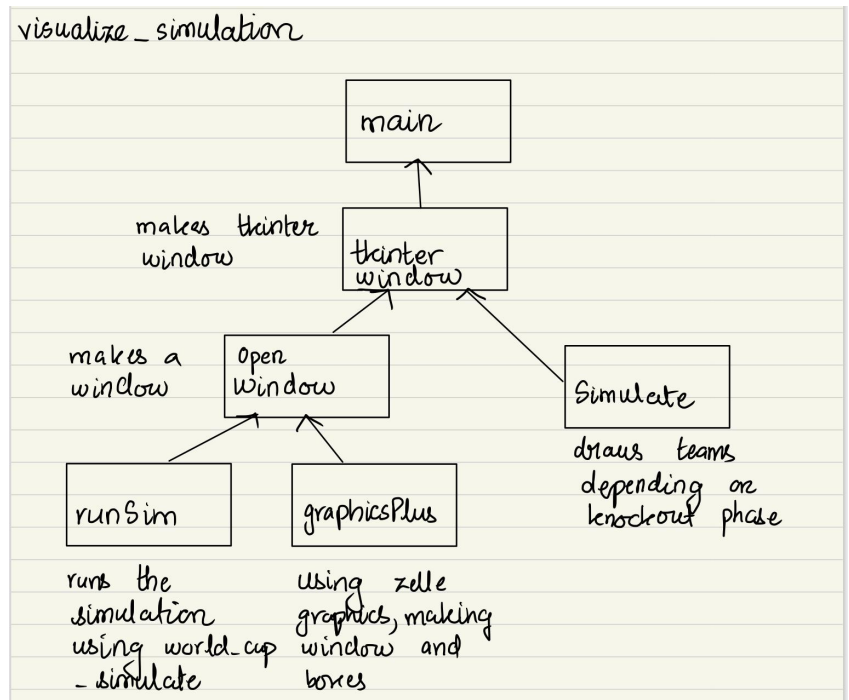 visualize_simulation
main
makes tkinter
window
tkinter
window
makes a
window
Open
window
Simulate
draws teams
depending on
knockout phase
runSim
graphicsPlus
runs the
simulation
using world_cup
_simulate
using zelle
graphics, making
window and
boxes